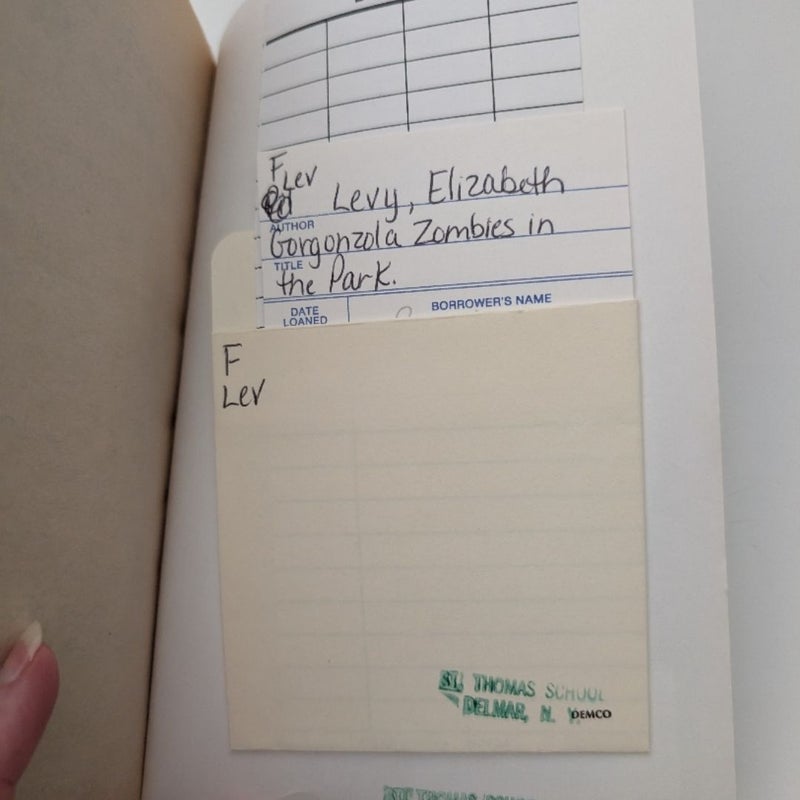 F
Lev
Levy, Elizabeth
AUTHOR
Gorgonzola Zombies in
TITLE
the Park.
DATE
LOANED
BORROWER'S NAME
F
Lev
ST. THOMAS SCHOOL
DELMAR, N. Y.
DEMCO